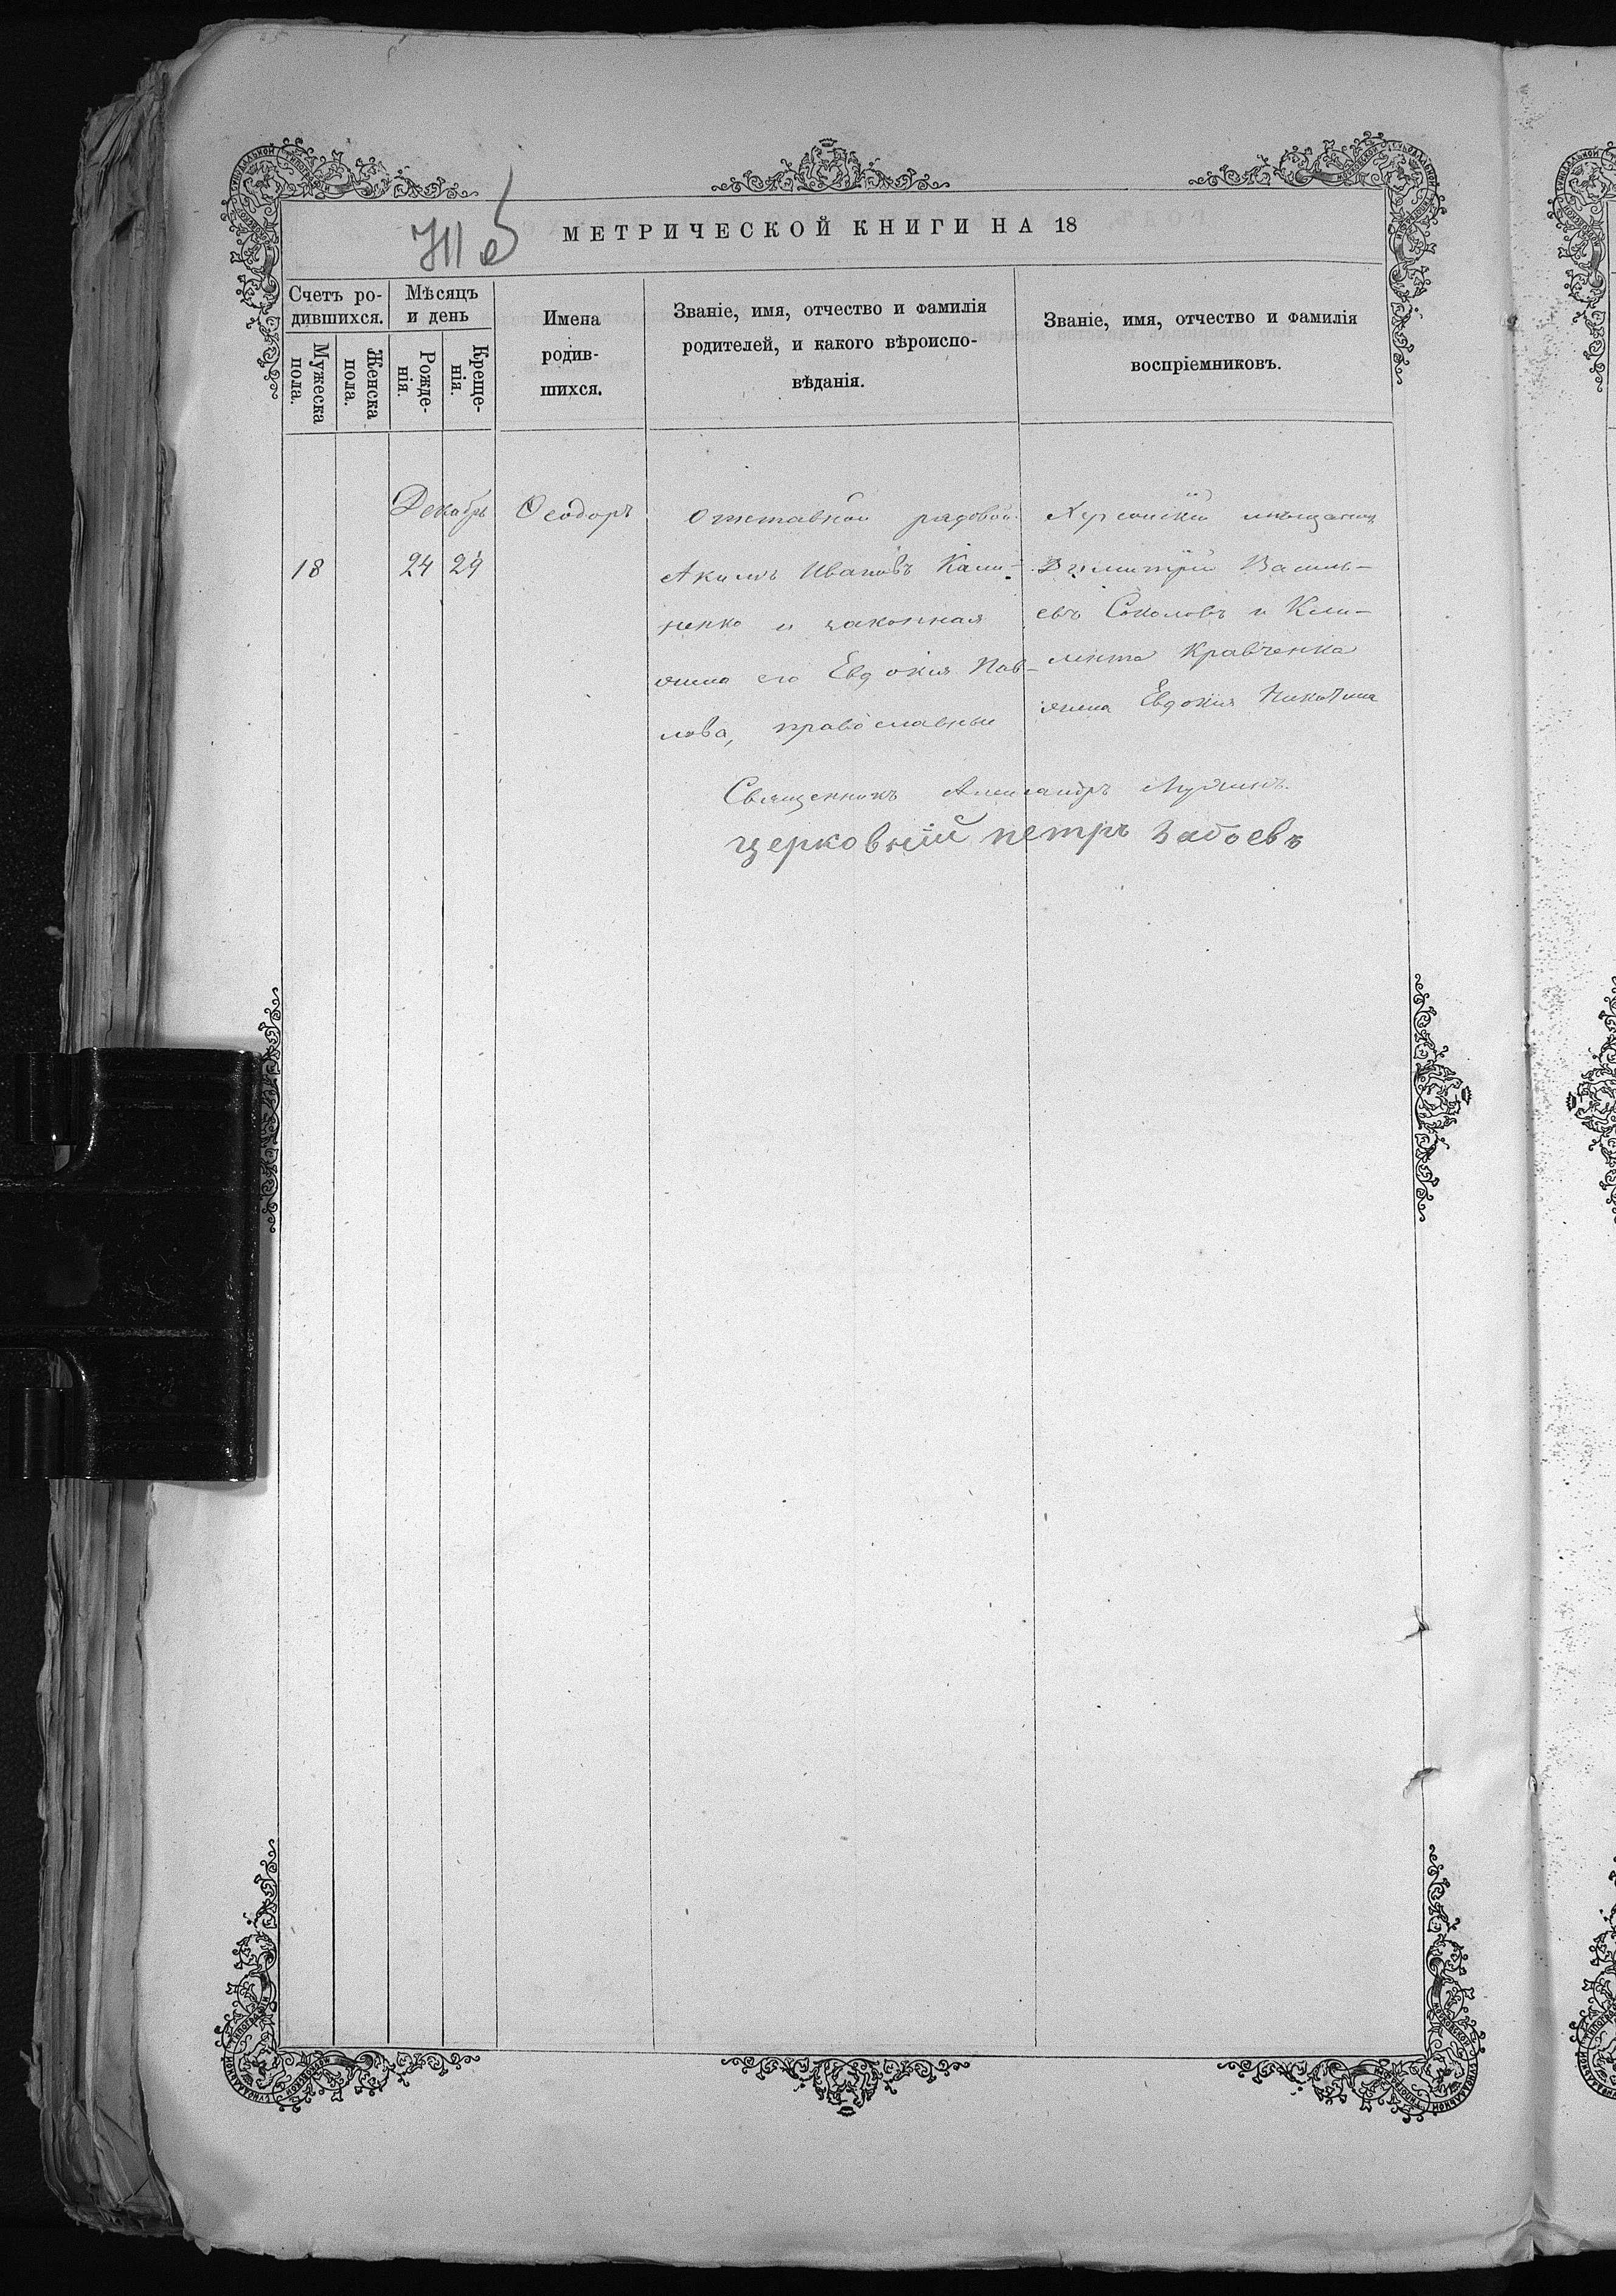 МЕТРИЧЕСКОЙ КНИГИ НА 18
Счетъ ро-
дившихся.
Мужеска
пола.
Женска
пола.
Мѣсяцъ
и день
Рожде-
нія.
Креще-
нія.
Имена
родив-
шихся.
Званіе, имя, отчество и фамилія
родителей, и какого вѣроиспо-
вѣданія.
Званіе, имя, отчество и фамилія
воспріемниковъ.
Декабрь
18 24 29
Ѳеодоръ
Отставной рядовой
Акимъ Ивановъ Кали-
ненко и законная
жена его Евдокия Пав-
лова, православные
Херсонскій мѣщанинъ
Димитрій Василь-
евъ Соколовъ и Кли-
мента Кравченка
жена Евдокия Никитина
Священникъ Александръ
церковній петръ Забоевъ